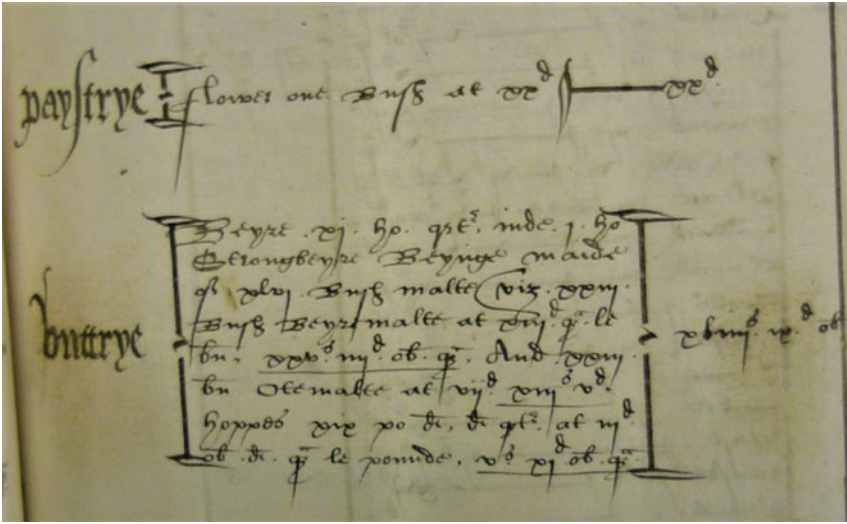 paystrye flower one Bush at xx d xx d
Beyre . xi . ho . qrt . inde . i . ho
Strongbeyre Beynge maide
of . xlvi . Bush malte viz . xxiii .
buttrye Bush Beyremalte at xiii d . qa . le
bu . xxv s iiii d . ob . qa . And . xxiii . ix d ob
bu Otemalte at vii d xiii s v d .
hoppes xix po di , di qrt . at iii d
ob . di . qa le pounde , v s xi d . ob . qa .